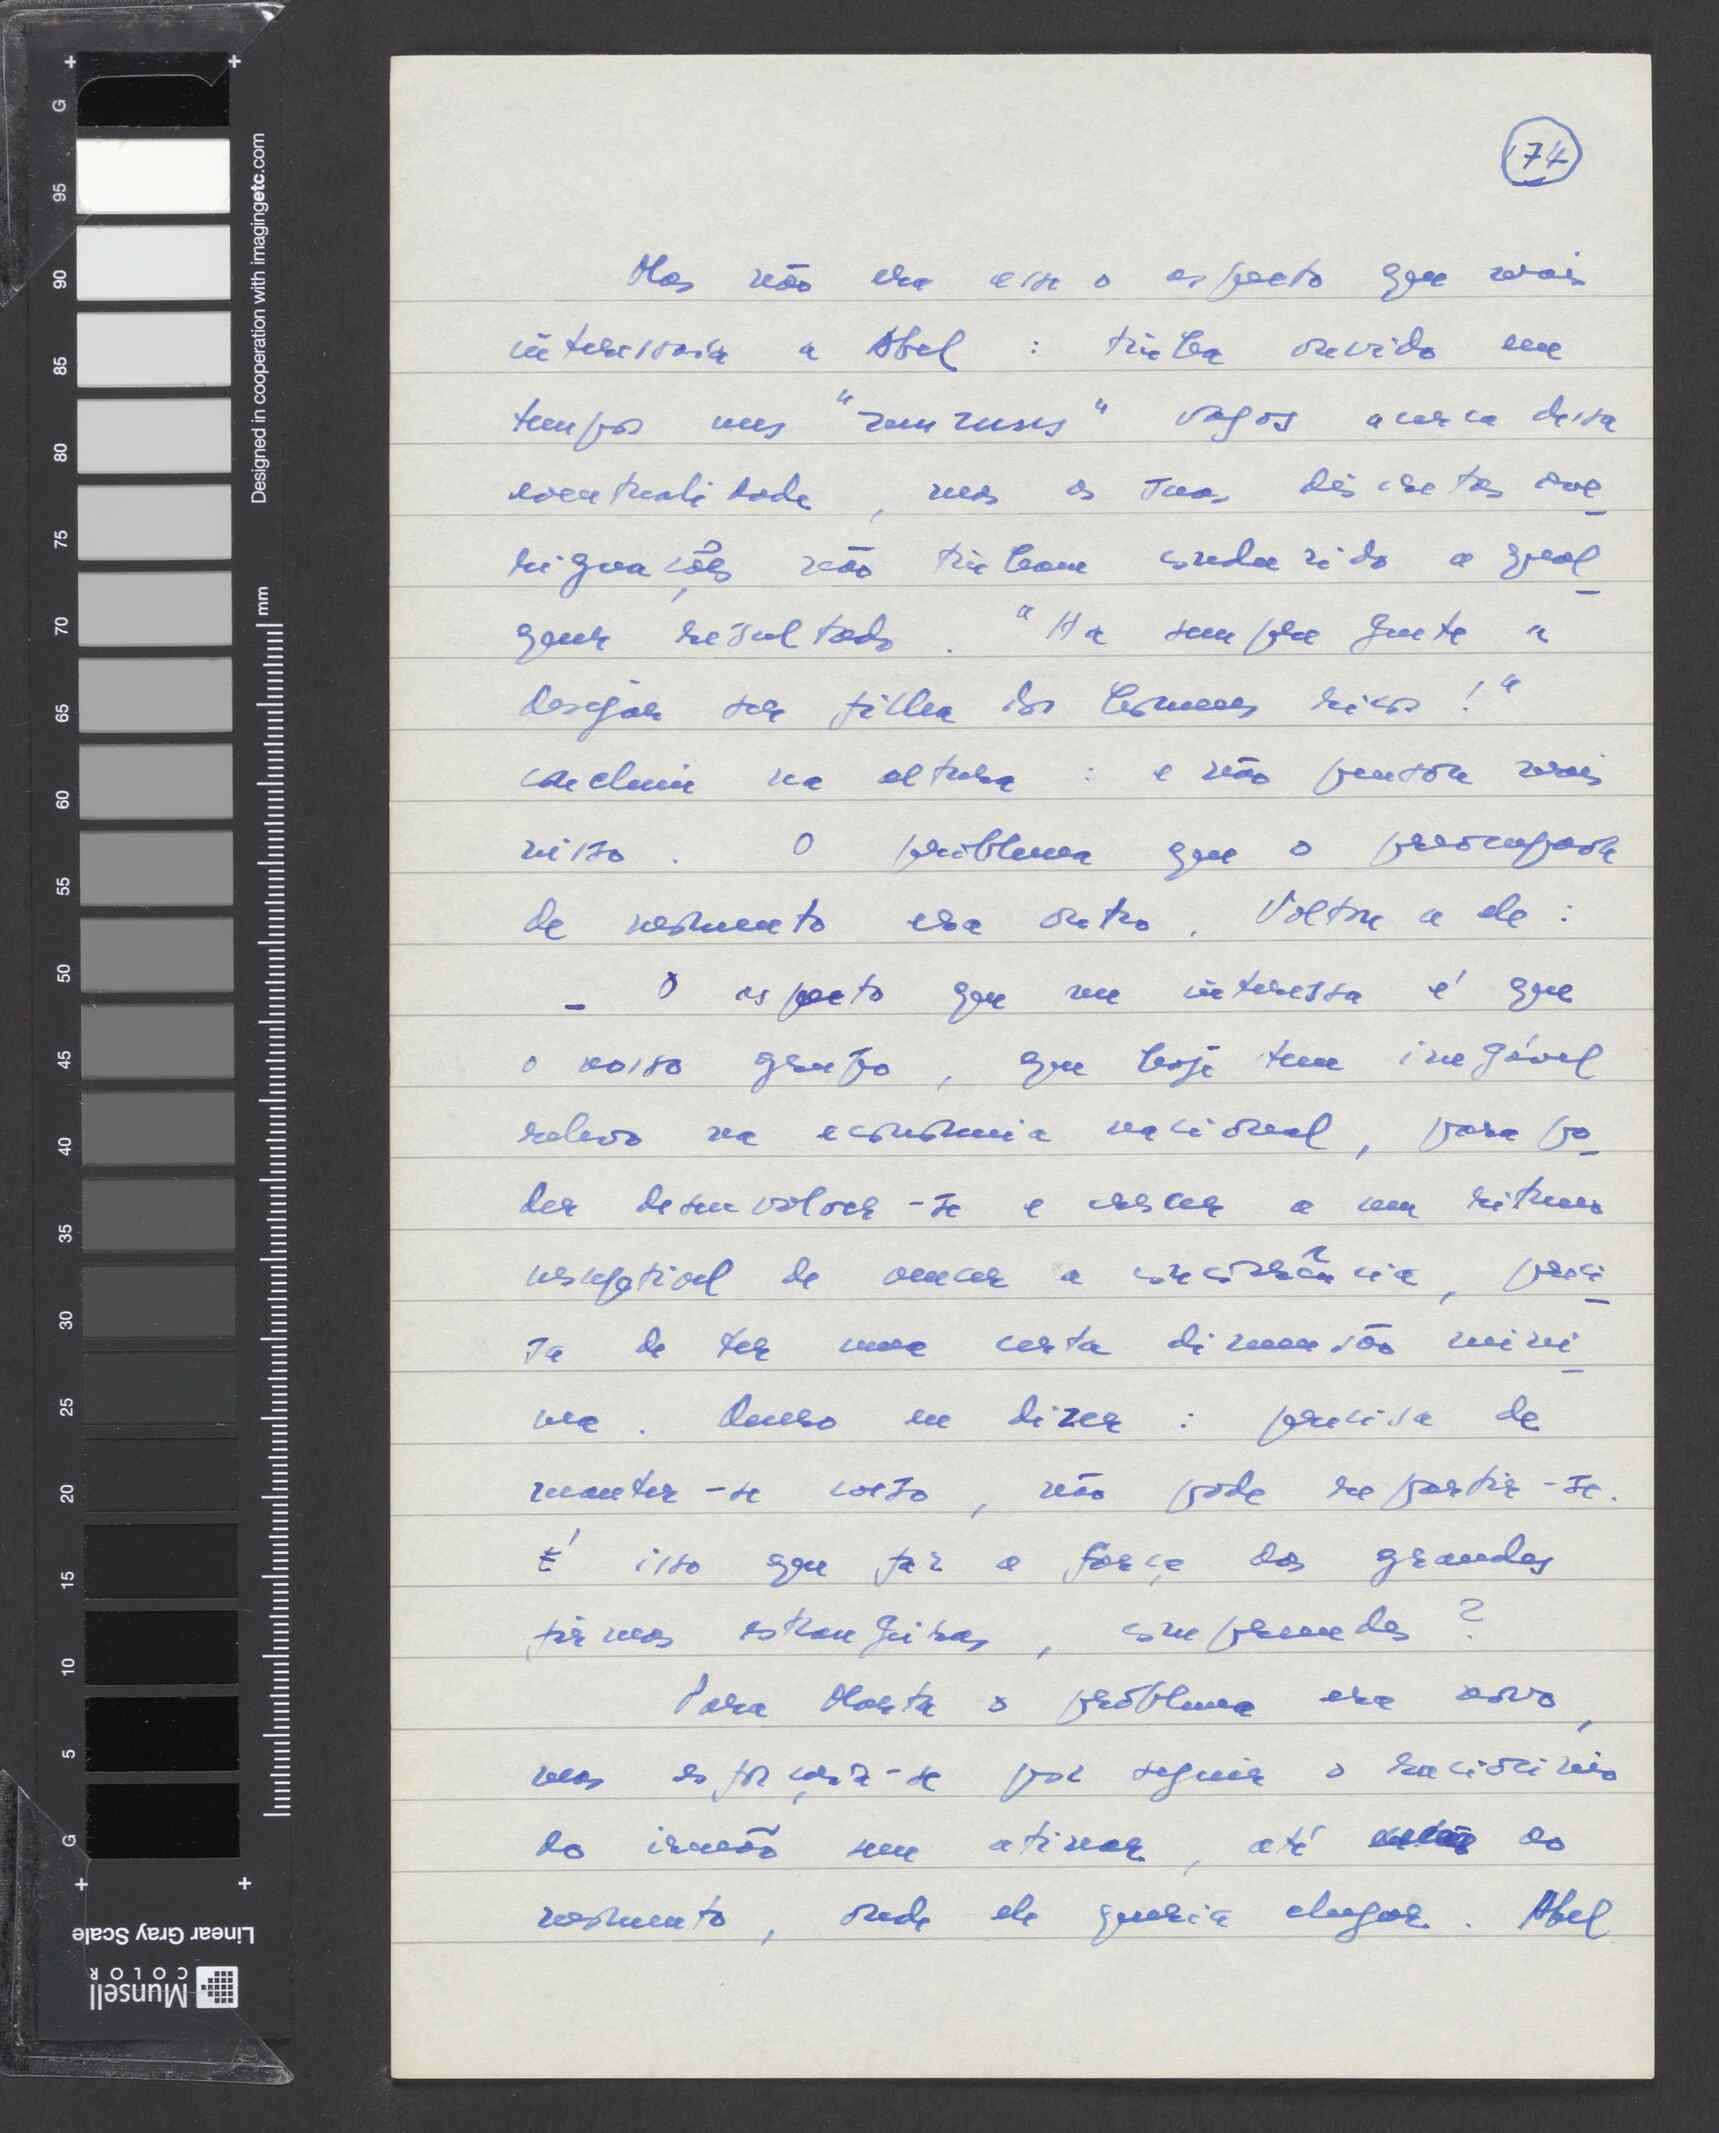 174
Mas não era esse o aspecto que mais
interessava a Abel : tinha ouvido em
tempos uns "zunzuns" vagos acerca dessa
eventualidade , mas as suas discretas ave_
riguações não tinham conduzido a qual_
quer resultado . "Ha sempre gente a
desejar ser filha dos homens ricos !"
concluiu na altura : e não pensou mais
nisso . O problema que o preocupava
de momento era outro . Voltou a ele :
_ O aspecto que me interessa é que
o nosso grupo , que hoje tem inegável
relevo na economia nacional , para po_
der desenvolver-se e crescer a um ritmo
susceptivel de vencer a concorrência , preci_
sa de ter uma certa dimensão mini_
ma . Quero eu dizer : precisa de
manter-se coeso , não pode repartir-se.
É isso que faz a força das grandes
firmas estrangeiras , compreendes ?
Para Marta o problema era novo ,
mas esforçava-se por seguir o raciocinio
do irmão sem atinar , até ao
momento , onde ele queria chegar . Abel
G 95 90 85 80 75 70 65 60 55 50 45 40 35 30 25 20 15 10 5 G
Designed in cooperation with imagingetc.com
mm
Linear Gray Scale
Munsell
COLOR